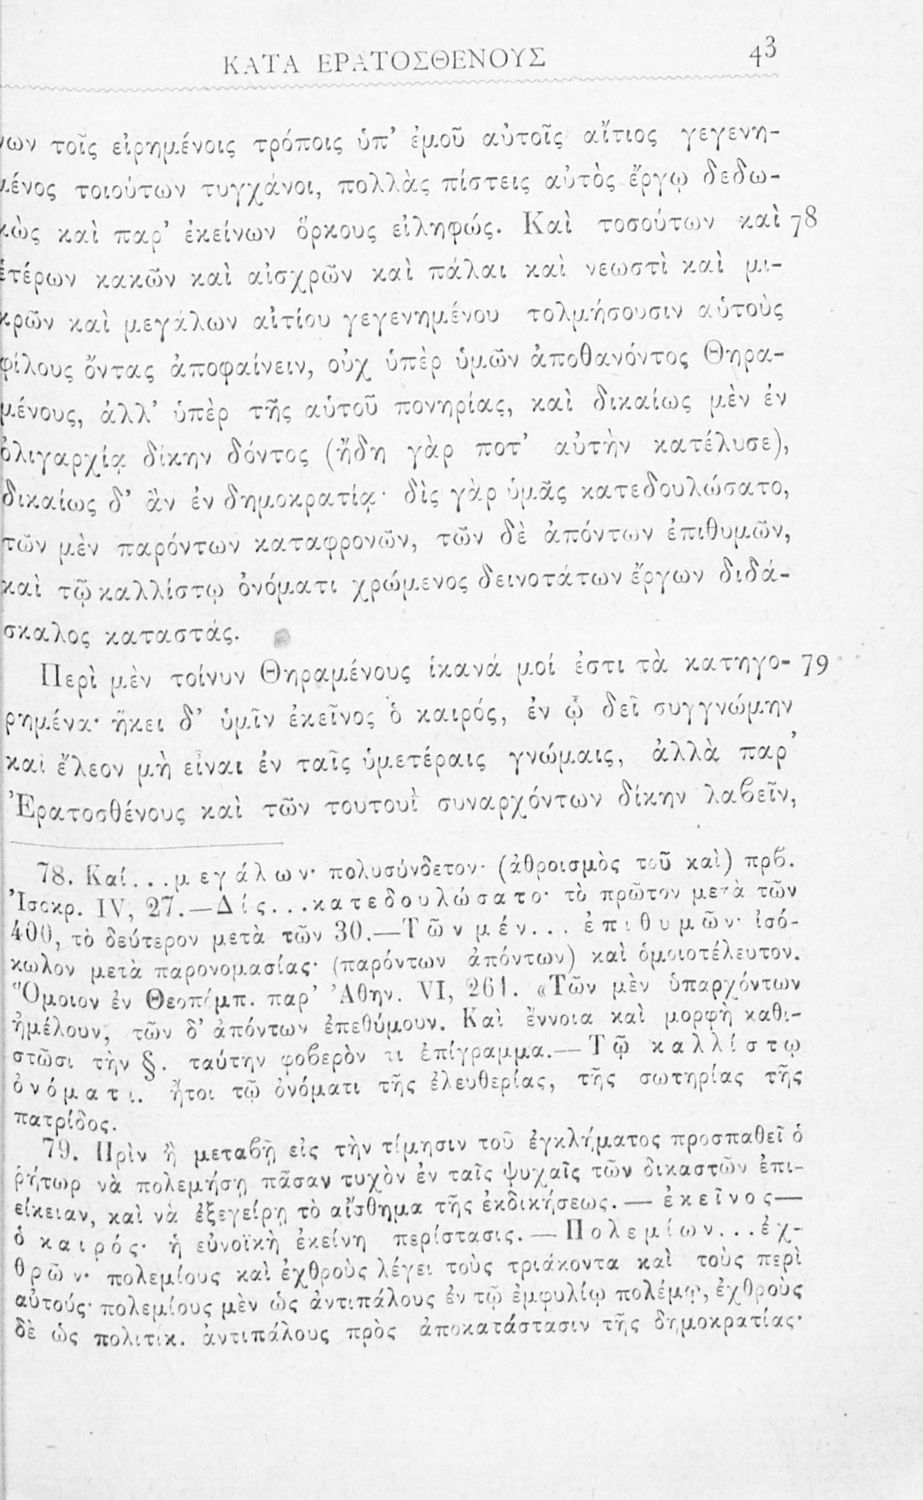 ΚΑΤΑ ΕΡΑΤΟΣΘΕΝΟΥΣ 43
νων τοῖς εἰρημένοις τρόποις ὑπ’ ἐμοῦ αὐτοῖς αἴτιος γεγενη-
μένος τοιούτων τυγχάνοι, πολλὰς πίστεις αὐτὸς ἔργῳ δεδω-
κὼς καὶ παρ’ ἐκείνων ὅρκους εἰληφώς. Καὶ τοσούτων καὶ 78
ἑτέρων κακῶν καὶ αἰσχρῶν καὶ πάλαι καὶ νεωστὶ καὶ μι-
κρῶν καὶ μεγάλων αἰτίου γεγενημένου τολμήσουσιν αὑτοὺς
φίλους ὄντας ἀποφαίνειν, οὐχ ὑπὲρ ὑμῶν ἀποθανόντος Θηρα-
μένους, ἀλλ’ ὑπὲρ τῆς αὑτοῦ πονηρίας, καὶ δικαίως μὲν ἐν
ὀλιγαρχίᾳ δίκην δόντος (ἤδη γὰρ ποτ’ αὐτὴν κατέλυσε),
δικαίως δ’ ἂν ἐν δημοκρατίᾳ· δὶς γὰρ ὑμᾶς κατεδουλώσατο,
τῶν μὲν παρόντων καταφρονῶν, τῶν δὲ ἀπόντων ἐπιθυμῶν,
καὶ τῷ καλλίστῳ ὀνόματι χρώμενος δεινοτάτων ἔργων διδά-
σκαλος καταστάς.
Περὶ μὲν τοίνυν Θηραμένους ἱκανά μοί ἐστι τὰ κατηγο- 79
ρημένα· ἥκει δ’ ὑμῖν ἐκεῖνος ὁ καιρός, ἐν ᾧ δεῖ συγγνώμην
καὶ ἔλεον μὴ εἶναι ἐν ταῖς ὑμετέραις γνώμαις, ἀλλὰ παρ’
Ἐρατοσθένους καὶ τῶν τουτουῒ συναρχόντων δίκην λαϐεῖν,
78. Καί...μεγάλων· πολυσύνδετον· (ἀθροισμὸς τοῦ καὶ) πρϐ.
Ἰσοκρ. IV, 27.—Δίς...κατεδουλώσατο· τὸ πρῶτον μετὰ τῶν
400, τὸ δεύτερον μετὰ τῶν 30.—Τῶν μέν... ἐπιθυμῶν· ἰσό-
κωλον μετὰ παρονομασίας· (παρόντων ἀπόντων) καὶ ὁμοιοτέλευτον.
Ὅμοιον ἐν Θεοπόμπ. παρ’ Ἀθην. VI, 261. «Τῶν μὲν ὑπαρχόντων
ἠμέλουν, τῶν δ’ ἀπόντων ἐπεθύμουν. Καὶ ἔννοια καὶ μορφὴ καθι-
στῶσι τὴν §. ταύτην φοϐερὸν τι ἐπίγραμμα.—Τῷ καλλίστῳ
ὀνόματι. ἤτοι τῷ ὀνόματι τῆς ἐλευθερίας, τῆς σωτηρίας τῆς
πατρίδος.
79. Πρὶν ἢ μεταϐῇ εἰς τὴν τίμησιν τοῦ ἐγκλήματος προσπαθεῖ ὁ
ῥήτωρ νὰ πολεμήσῃ πᾶσαν τυχὸν ἐν ταῖς ψυχαῖς τῶν δικαστῶν ἐπι-
είκειαν, καὶ νὰ ἐξεγείρῃ τὸ αἴσθημα τῆς ἐκδικήσεως.—ἐκεῖνος—
ὁ καιρός· ἡ εὐνοϊκὴ ἐκείνη περίστασις.—Πολεμίων...ἐχ-
θρῶν· πολεμίους καὶ ἐχθροὺς λέγει τοὺς τριάκοντα καὶ τοὺς περὶ
αὐτούς· πολεμίους μὲν ὡς ἀντιπάλους ἐν τῷ ἐμφυλίῳ πολέμῳ, ἐχθροὺς
δὲ ὡς πολιτικ. ἀντιπάλους πρὸς ἀποκατάστασιν τῆς δημοκρατίας·